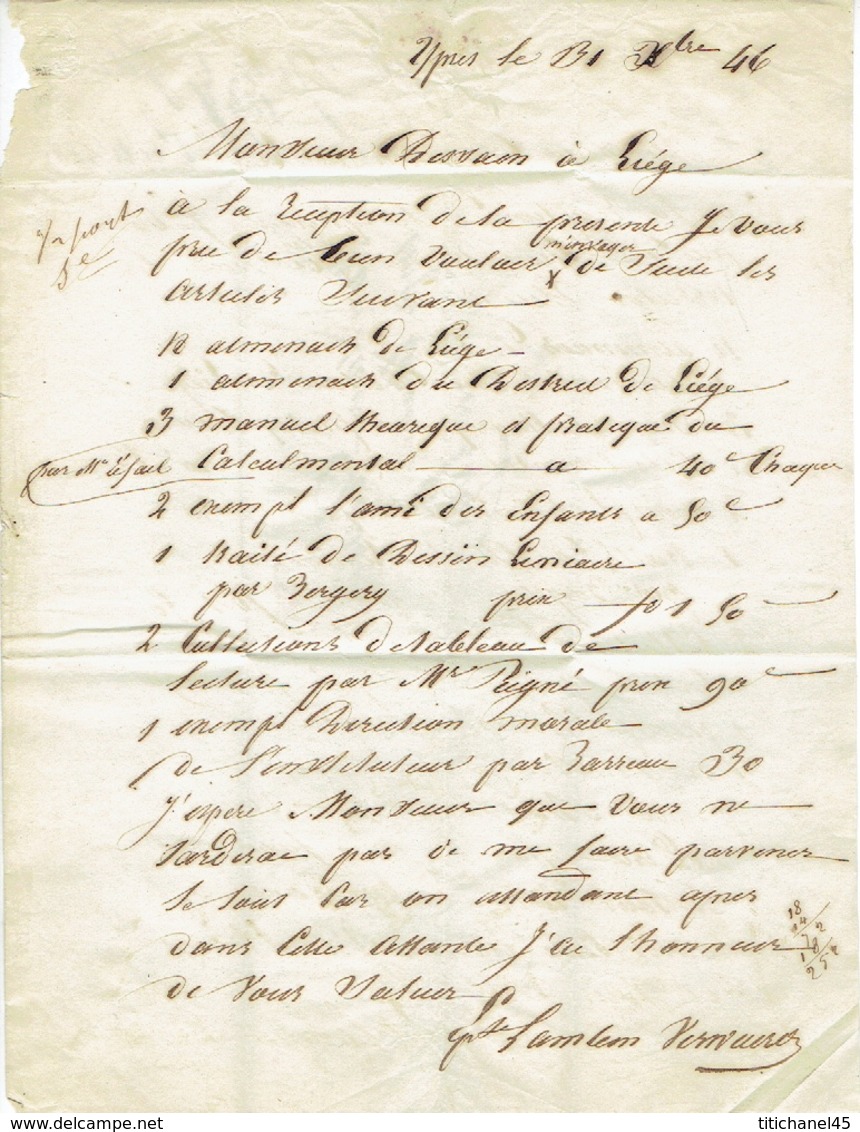 Ypres le 31 Xbre 46
Monsieur Dessain à Liége
à la reception de la presente Je vous
prie de bien vouloir m'envoyer de Suite les
articles Suivant
12 almenach de Liége
1 almenach du District de Liége
3 manuel theorique et pratique du
par Mr
Calcul mental a 40c Chaque
2 exempl l'ami des Enfants a 50c
1 traité de Dessin Liniaire
par Bergery prix fr 1 50
2 Collections de tableau de
lecture par Mr Peigné prix 90c
1 exempl Direction morale
de l'institituteur par Barreau 30
J'espere Monsieur que vous ne
tarderae pas de me faire parvenir
le tout Car on attandant apres
dans Cette attante J'ai l'honneur
de Vous Saluer
18
14/
72
18/
252
Lambin
www.delcampe.net
titichanel45